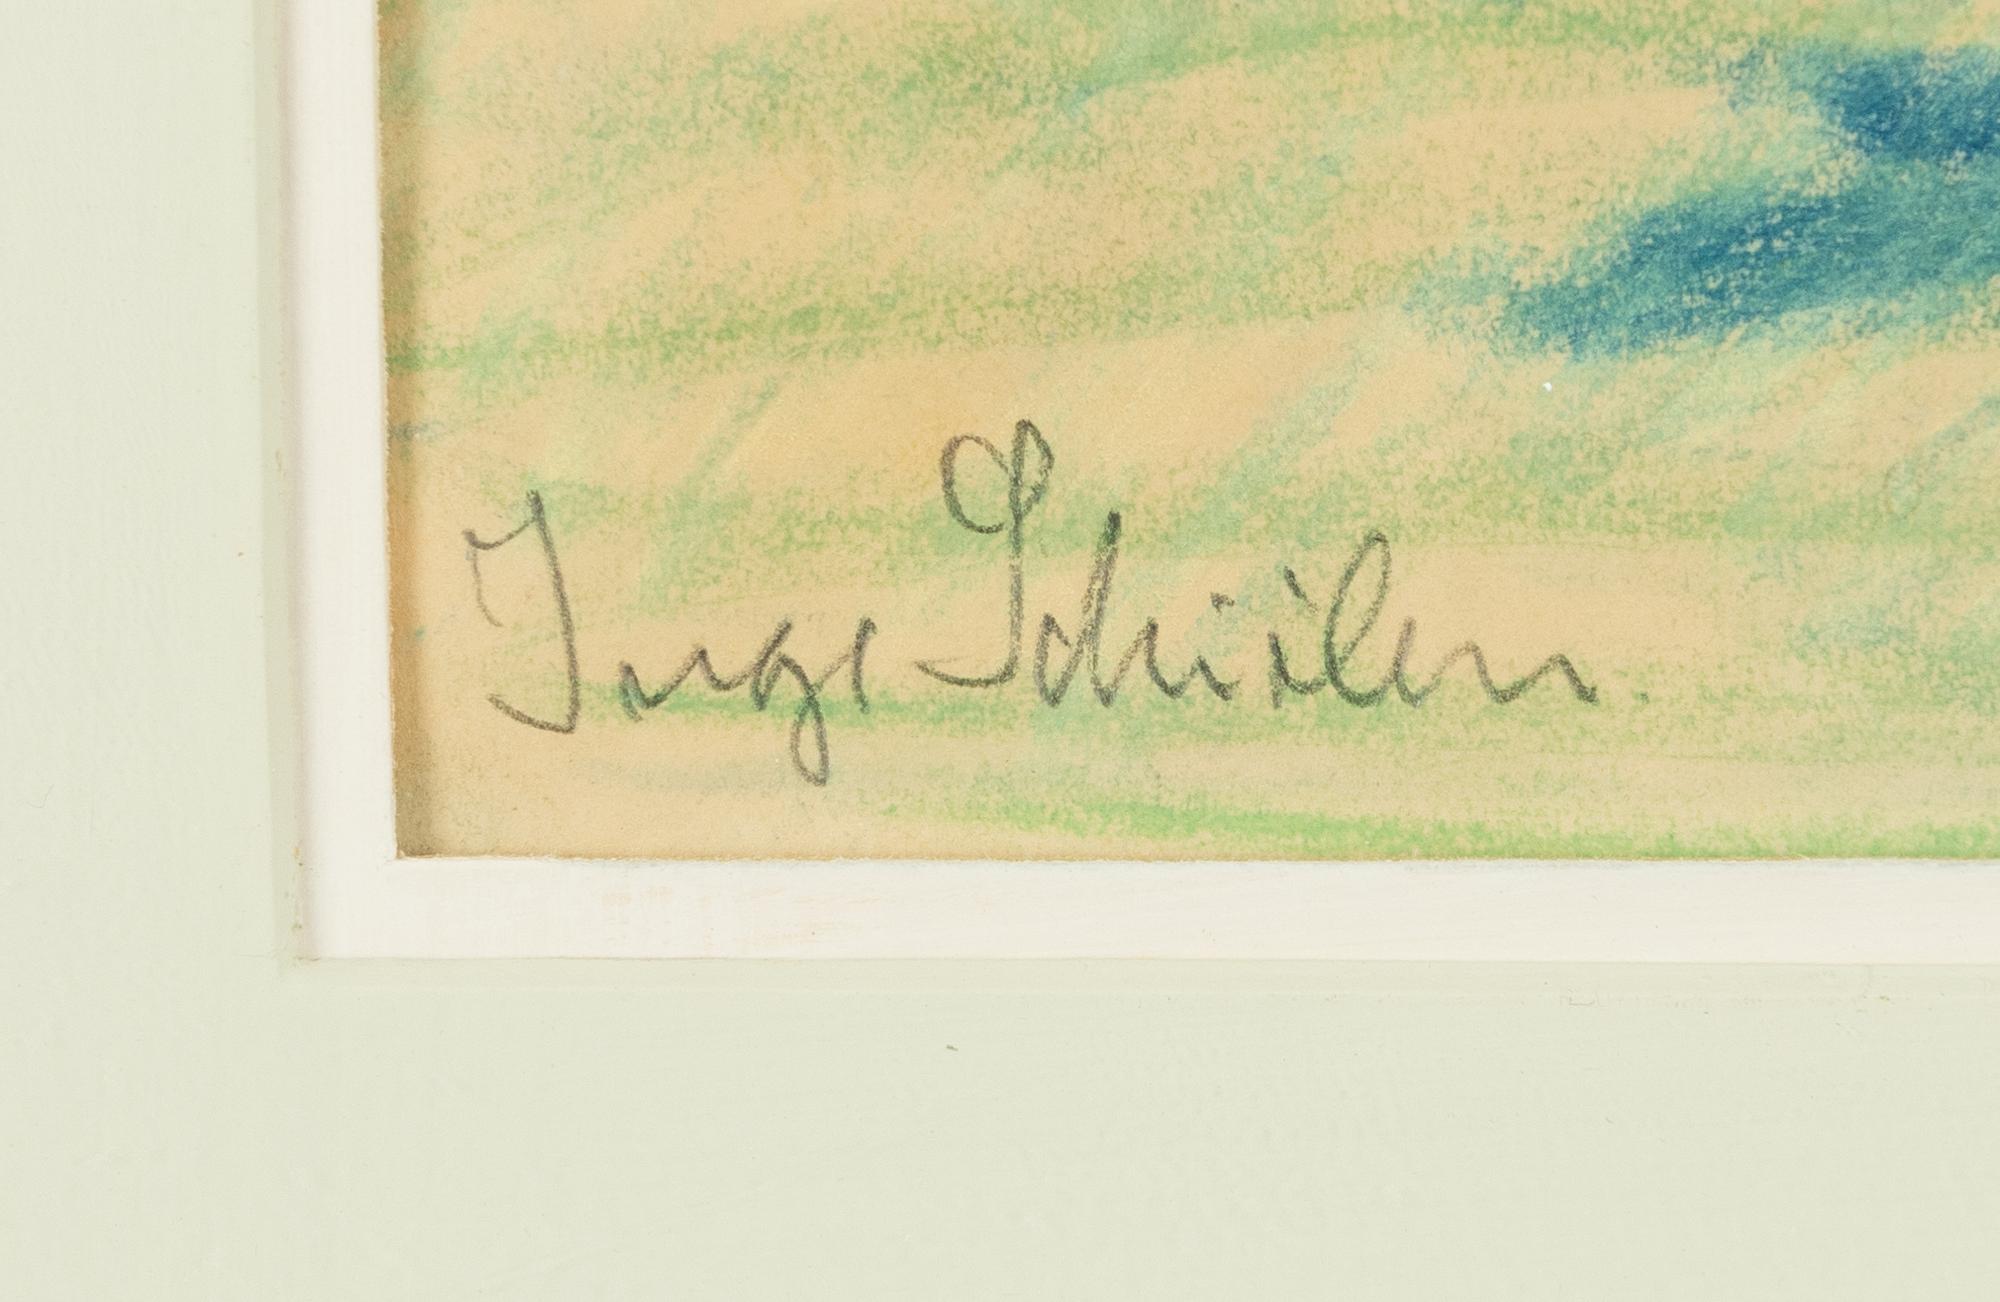 Inge Schiöler.